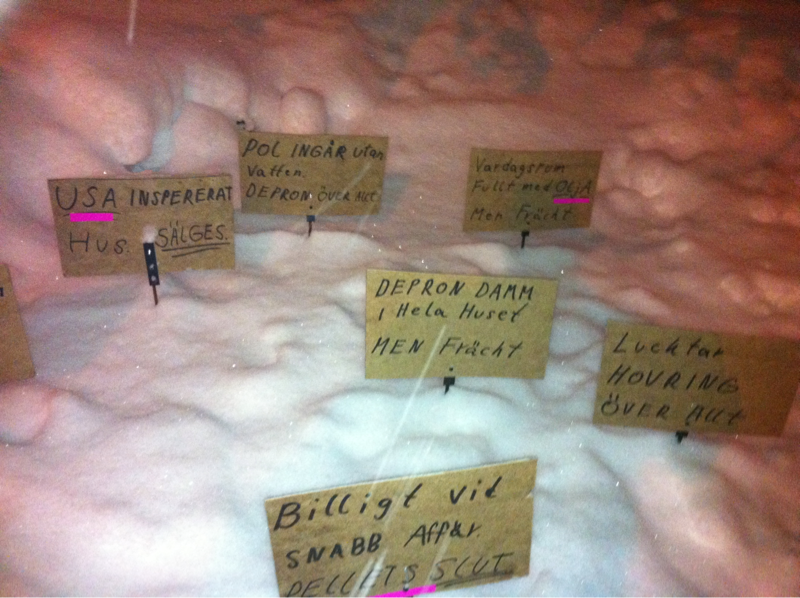 USA INSPERERAT
HUS. SÄLGES.
POL INGÅR utan
Vatten.
DEPRON ÖVER ALLT
Vardagsrom
Fullt med OljA
Men Frächt
DEPRON DAMM
i Hela Huset
MEN Frächt
Lucktar
HOVRING
ÖVER ALLT
Billigt vid
SNABB Affär.
PELLETS SLUT.